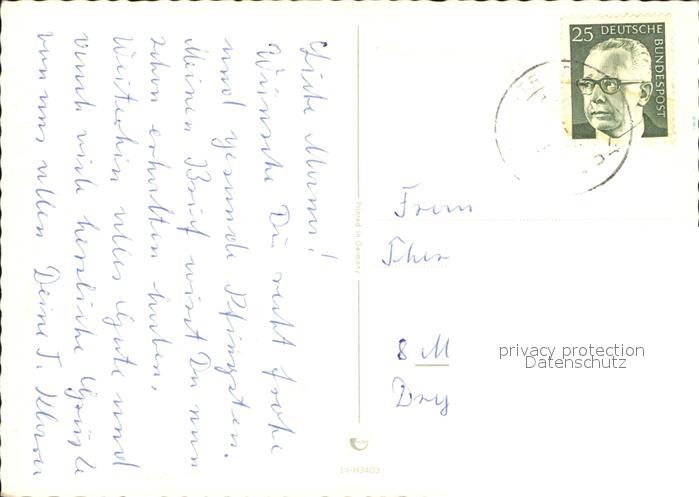 Liebe Mama!
Wünsche Dir recht frohe
und gesunde Pfingsten.
Meinen Brief wirst Du nun
schon erhalten haben,
Weiterhin alles Gute und
auch viele herzliche Grüße
von uns allen Deine T.
25 DEUTSCHE
BUNDESPOST
Printed in Germany
Frau
8 M
privacy protection
Datenschutz
14-H3403